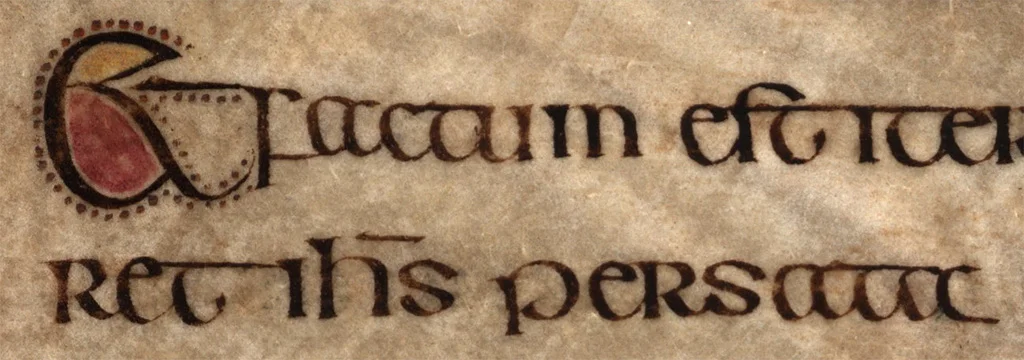 Et factum est iter
ret ihs per sata